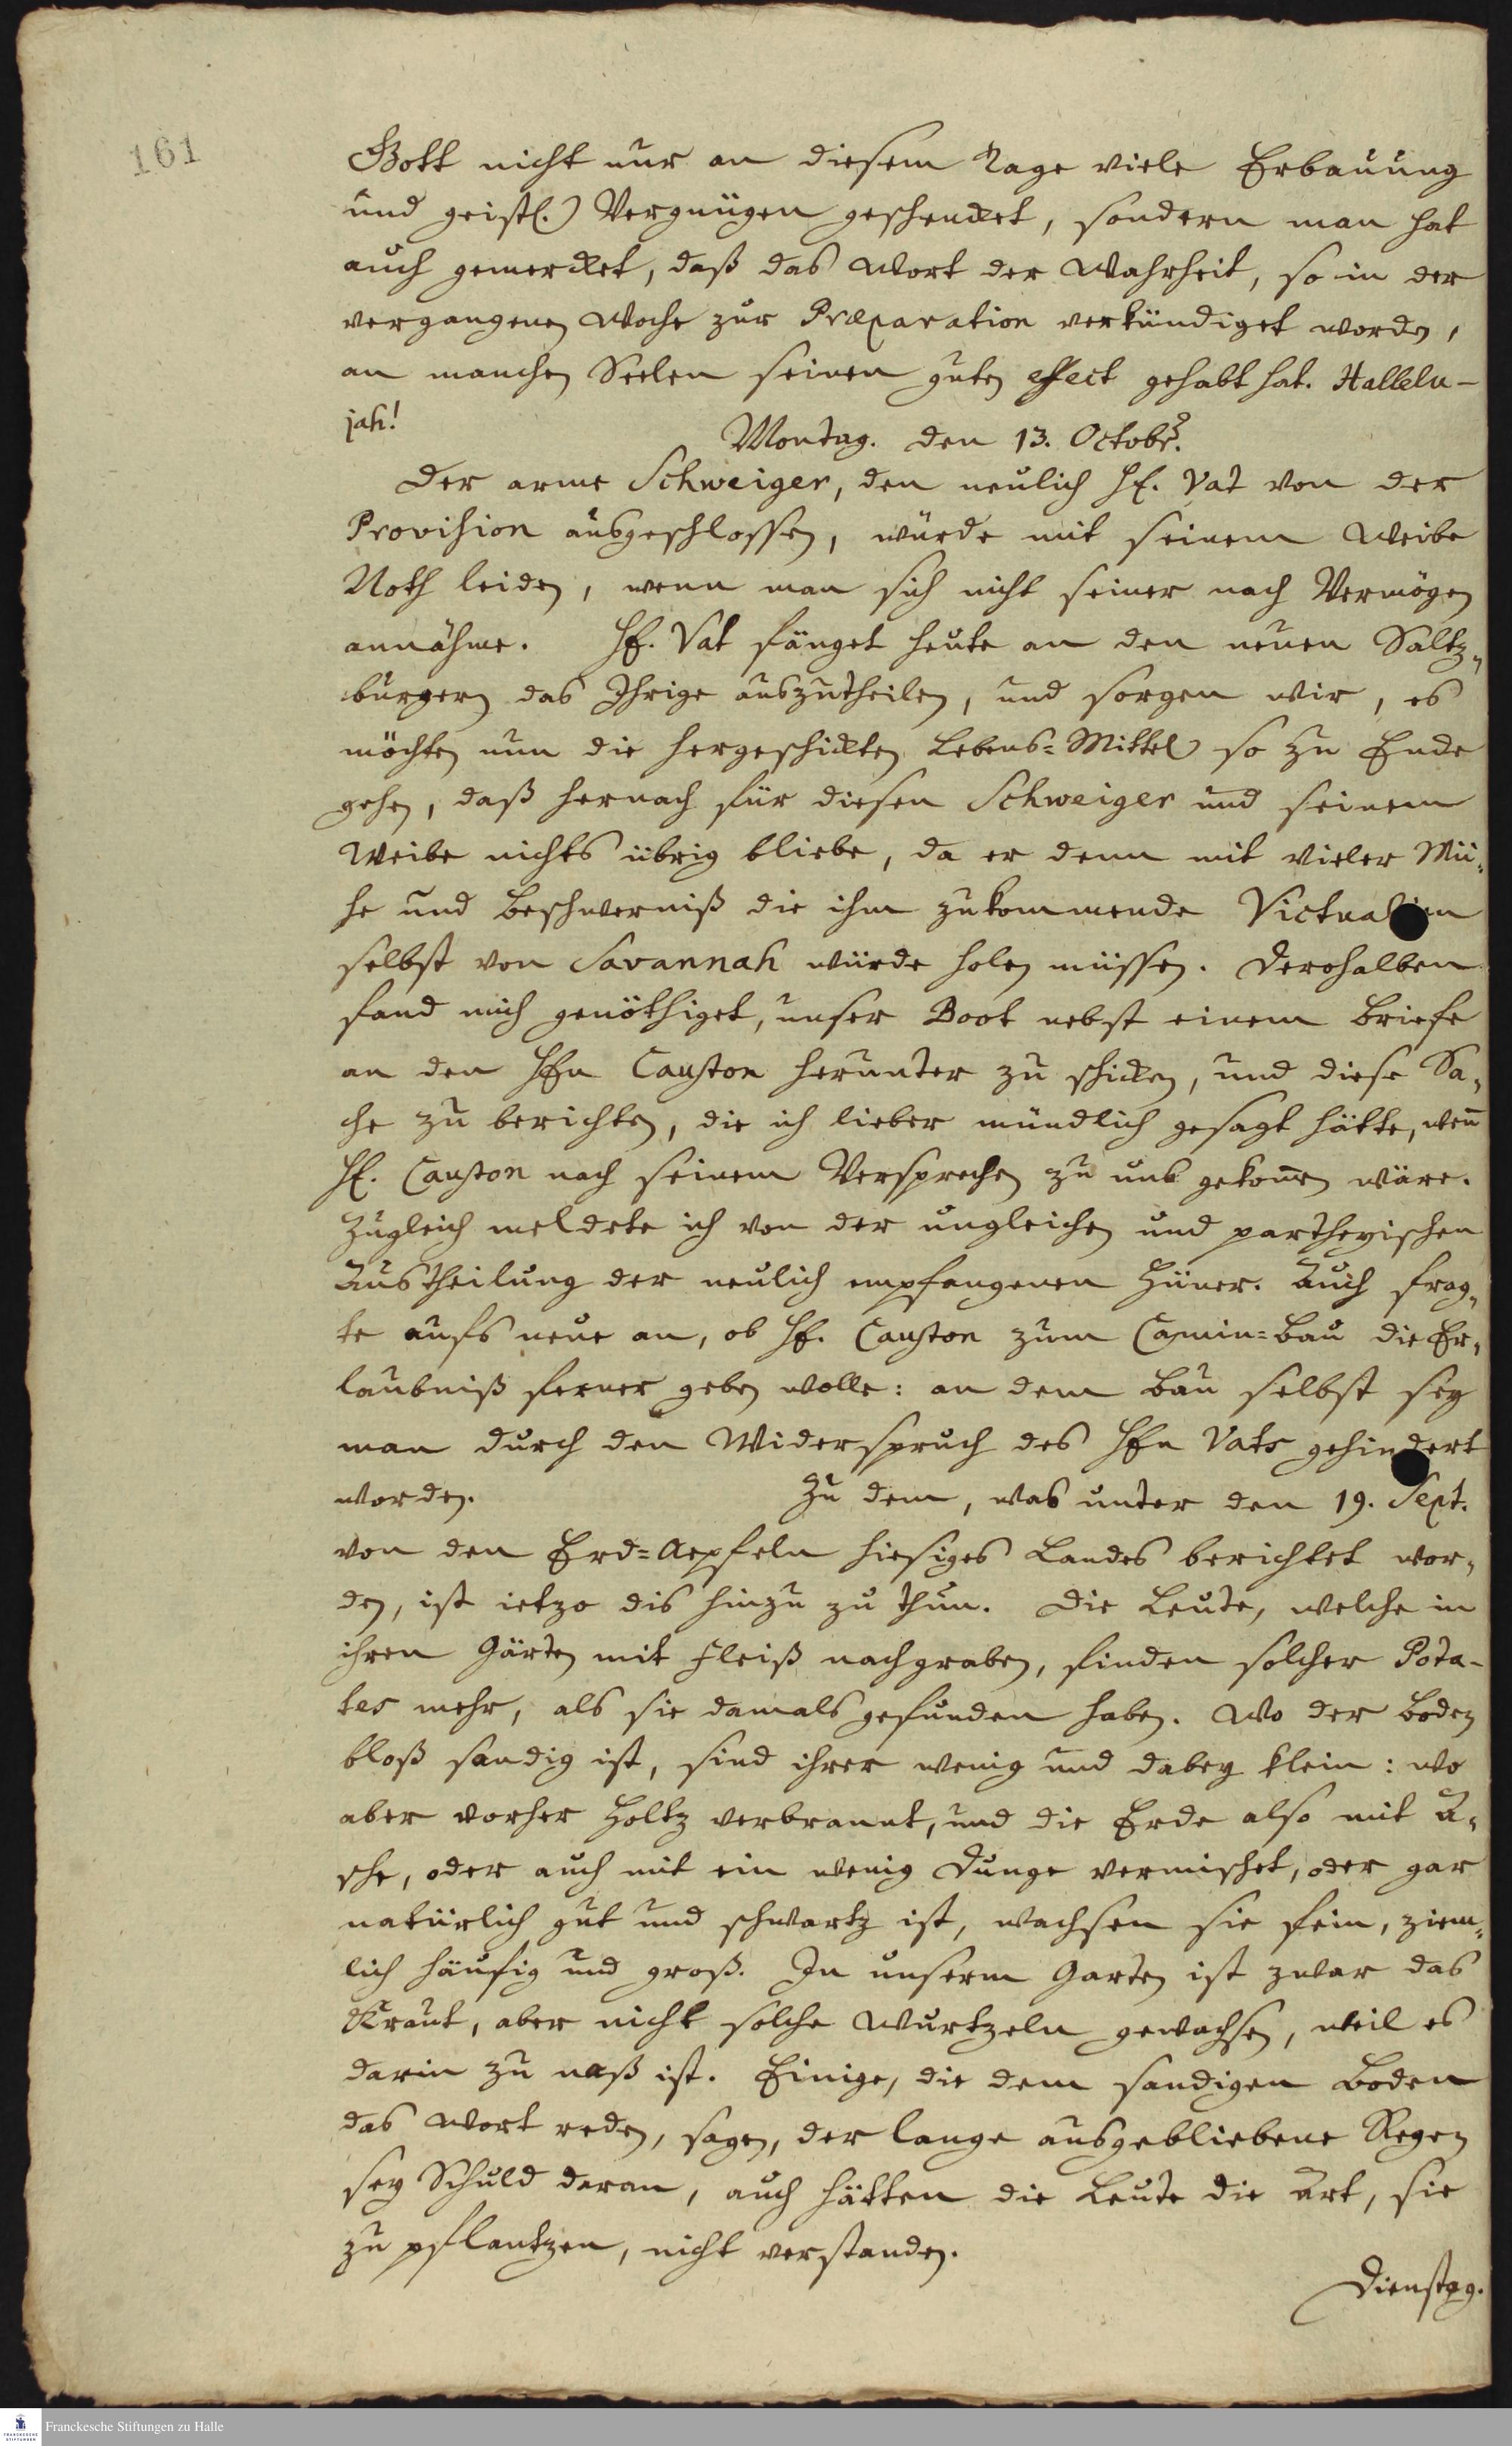 161
Gott nicht nur an diesem Tage viele Erbauung
und geistl. Vergnügen geschencket, sondern man hat
auch gemercket, daß das Wort der Wahrheit, so in der
vergangenen Woche zur Præparation verkündiget worden,
an manchen Seelen seinen guten effect gehabt hat. Hallelu-
jah!
Montag. den 13. Octobr.
Der arme Schweiger, den neulich H. Vat von der
Provision ausgeschlossen, würde mit seinem Weibe
Noth leiden, wenn man sich nicht seiner nach Vermögen
annähme. Hr. Vat fänget heute an den neuen Saltz-
burgern das Ihrige auszutheilen, und sorgen wir, es
möchten nun die hergeschickten Lebens-Mittel so zu Ende
gehen, daß hernach für diesen Schweiger und seinem
Weibe nichts übrig bliebe, da er denn mit vieler Mü-
he und Beschwerniß die ihm zukommende Victualien
selbst von Savannah würde holen müssen. Derohalben
fand mich genöthiget, unser Boot nebst einem Briefe
an den Hrn Causton herunter zu schicken, und diese Sa-
che zu berichten, die ich lieber mündlich gesagt hätte, weñ
H. Causton nach seinem Versprechen zu uns gekom̄en wäre.
Zugleich meldete ich von der ungleichen und partheyischen
Austheilung der neulich empfangenen Hüner. Auch frag-
te aufs neue an, ob Hr. Causton zum Camin-Bau die Er-
laubniß ferner geben wolle: an dem Bau selbst sey
man durch den Widerspruch des Hrn Vats gehindert
worden. Zu dem, was unter den 19. Sept.
von den Erd-Aepfeln hiesiges Landes berichtet wor-
den, ist ietzo dis hinzu zu thun. Die Leute, welche in
ihren Gärten mit Fleiß nachgraben, finden solcher Pota-
tes mehr, als sie damals gefunden haben. Wo der Boden
bloß sandig ist, sind ihrer wenig und dabey klein: wo
aber vorher Holtz verbrannt, und die Erde also mit A-
sche, oder auch mit ein wenig Dunge vermischet, oder gar
natürlich gut und schwartz ist, wachsen sie fein, ziem-
lich häufig und groß. In unserm Garten ist zwar das
Kraut, aber nicht solche Wurtzeln gewachsen, weil es
darin zu naß ist. Einige, die dem sandigen Boden
das Wort reden, sagen, der lange ausgebliebene Regen
sey Schuld daran, auch hätten die Leute die Art, sie
zu pflantzen, nicht verstanden.
Dienstag.
Franckesche Stiftungen zu Halle
FRANCKESCHE STIFTUNGEN